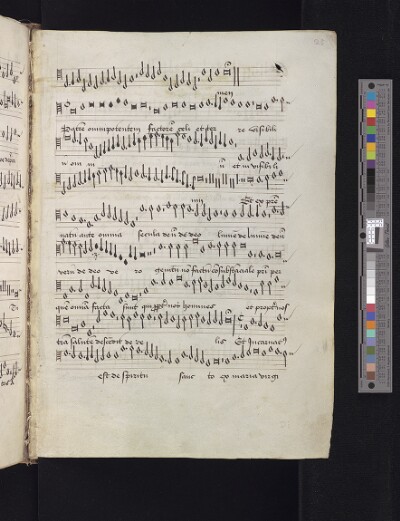 men
Patrē omnipotentem factorē celi et ter re visibili
ū om ni ū et invisibili
ū Et ex prē
natū ante omnia secula deū de deo lumē de lumine deū
verū de deo ve ro genitū nō factū cōsubstācialē pri per
quē omnia facta sunt qui ꝓpter nos homines et propter nos
trā salutē descēdit de ce lis Et Incarnatꝰ
est de spiritu sanc to ex maria virgi